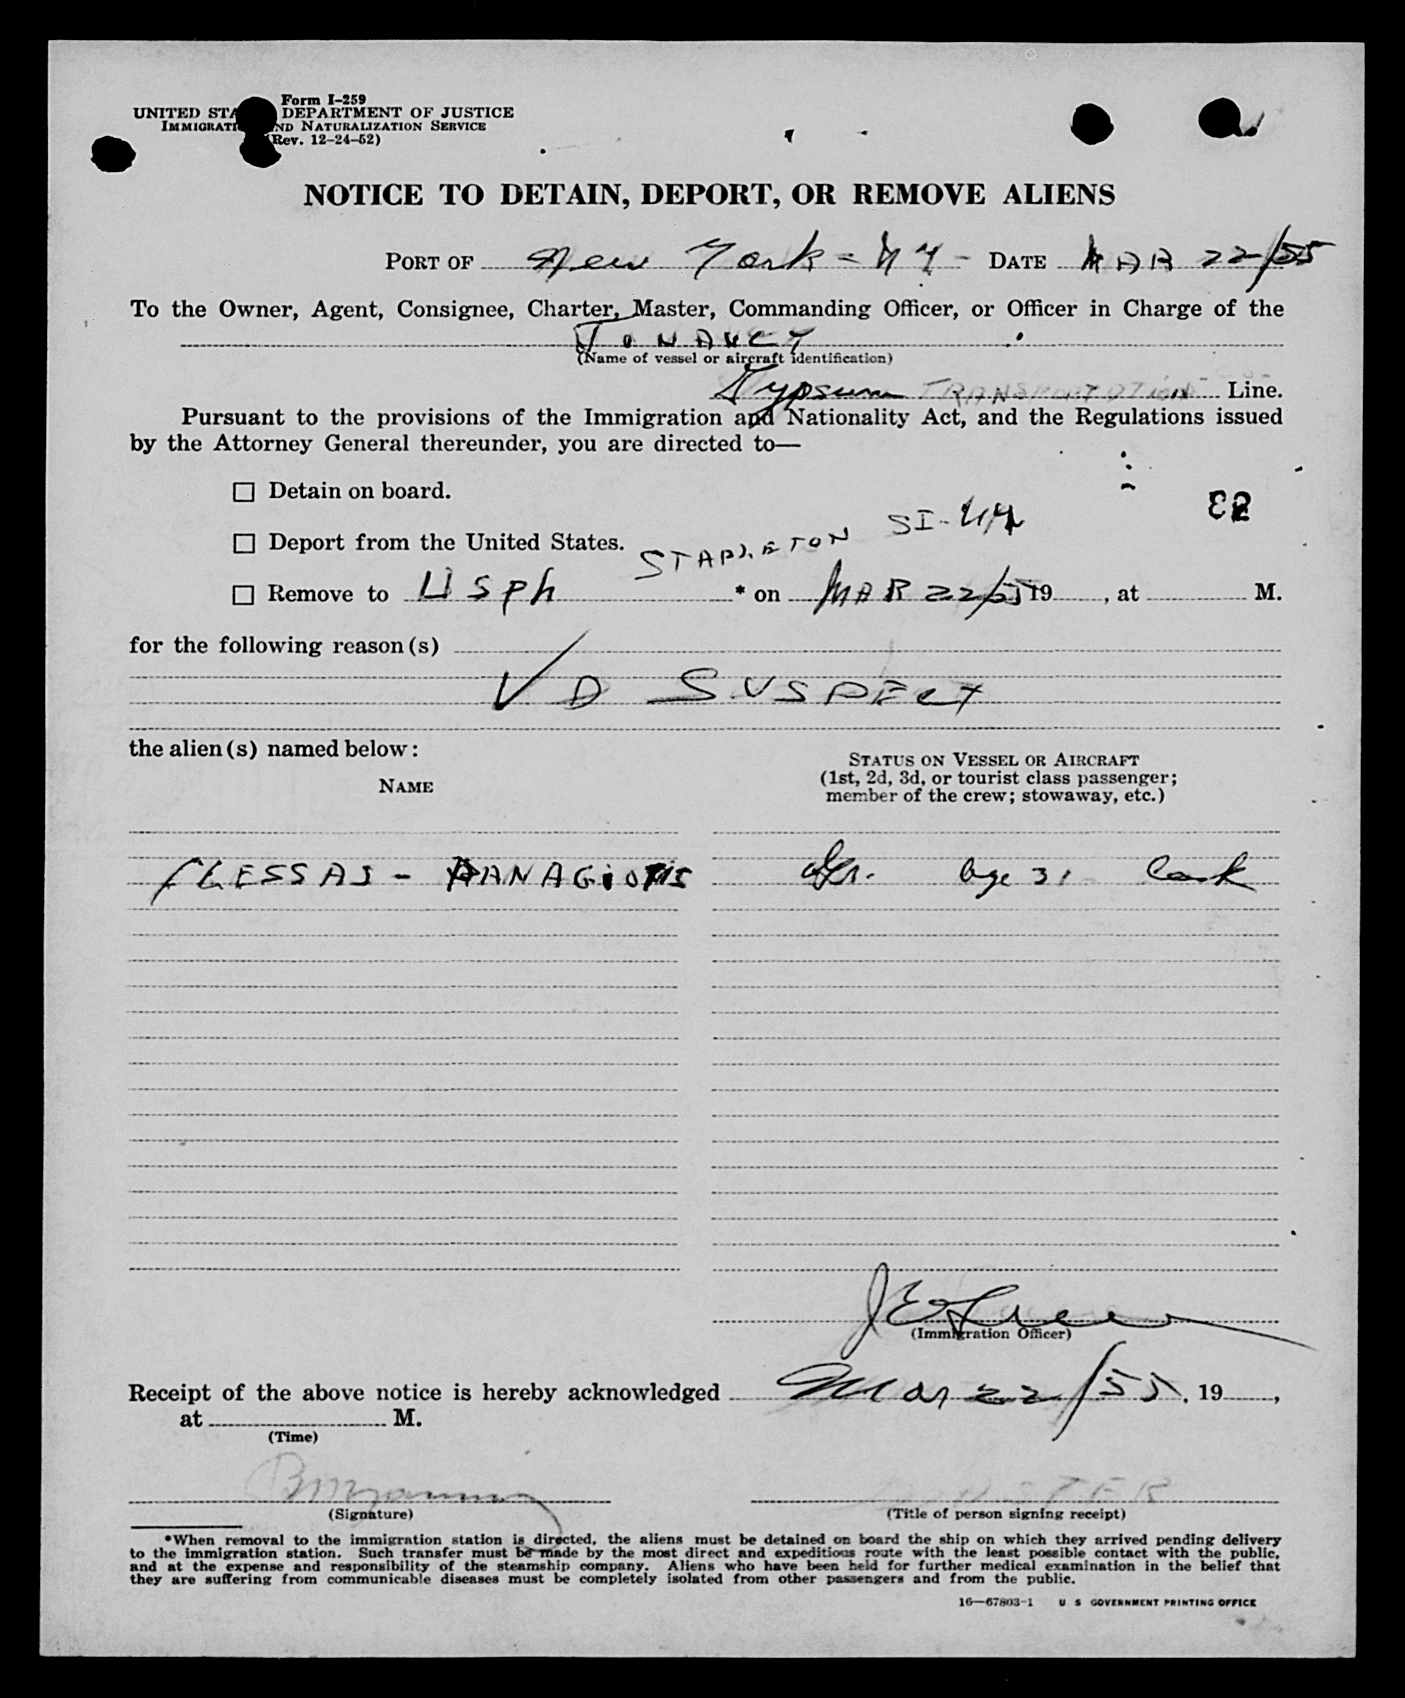 Form I-259
UNITED STA DEPARTMENT OF JUSTICE
IMMIGRATI ND NATURALIZATION SERVICE
(Rev. 12-24-52)
NOTICE TO DETAIN, DEPORT, OR REMOVE ALIENS
PORT OF New York - NY - DATE MAR 22/55
To the Owner, Agent, Consignee, Charter, Master, Commanding Officer, or Officer in Charge of the
JONANCY
(Name of vessel or aircraft identification)
Gypsum TRANSPORTATION Line.
Pursuant to the provisions of the Immigration and Nationality Act, and the Regulations issued
by the Attorney General thereunder, you are directed to—
☐ Detain on board.
☐ Deport from the United States. STAPLETON SI-NY
☐ Remove to USPh * on MAR 22/55 19 , at M.
for the following reason(s)
VD SUSPECT
the alien(s) named below:
NAME
STATUS ON VESSEL OR AIRCRAFT
(1st, 2d, 3d, or tourist class passenger;
member of the crew; stowaway, etc.)
FLESSAS - PANAGIOTIS Gr. Age 31 Cook
(Immigration Officer)
Receipt of the above notice is hereby acknowledged Mar 22/55, 19 ,
at M.
(Time)
(Signature)
(Title of person signing receipt)
*When removal to the immigration station is directed, the aliens must be detained on board the ship on which they arrived pending delivery
to the immigration station. Such transfer must be made by the most direct and expeditious route with the least possible contact with the public,
and at the expense and responsibility of the steamship company. Aliens who have been held for further medical examination in the belief that
they are suffering from communicable diseases must be completely isolated from other passengers and from the public.
16—67803-1 U S GOVERNMENT PRINTING OFFICE